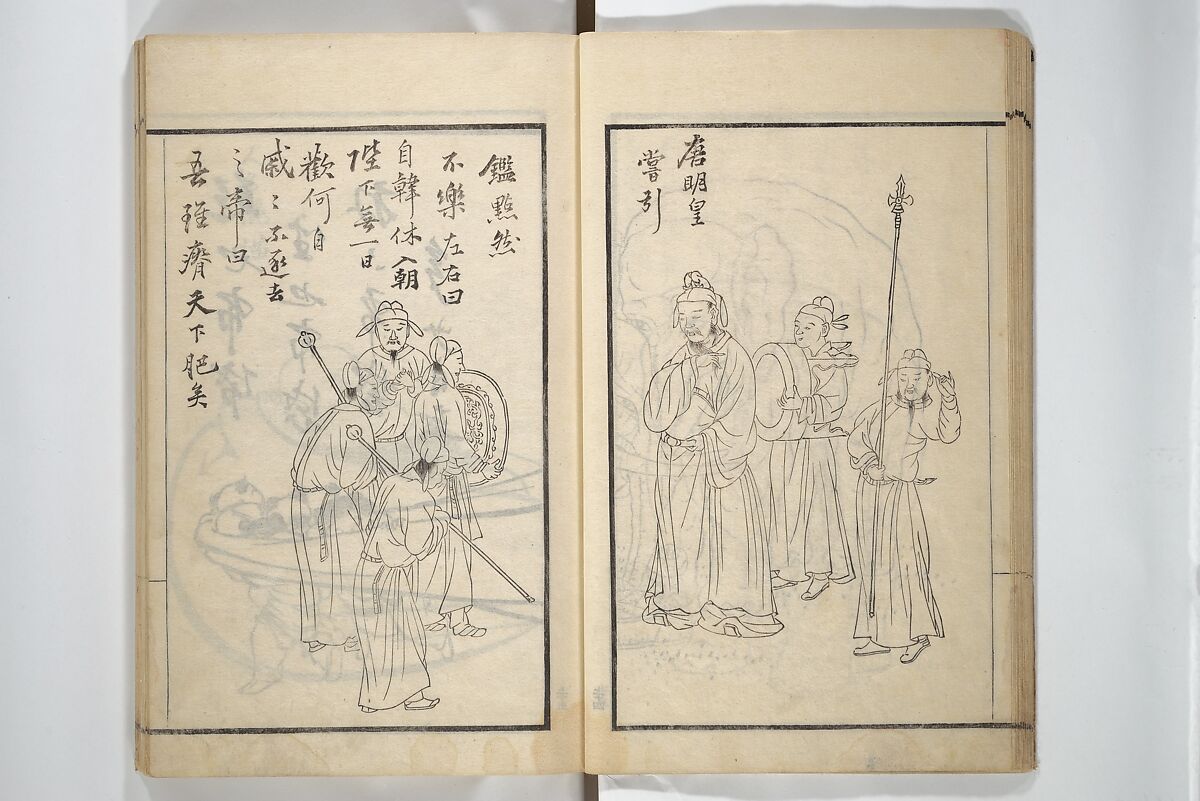 唐明皇
嘗引
鑑黙然
不樂左右曰
自韓休入朝
陛下無一日
歡何自
戚〻不逐去
之帝曰
吾雖瘠天下肥矣